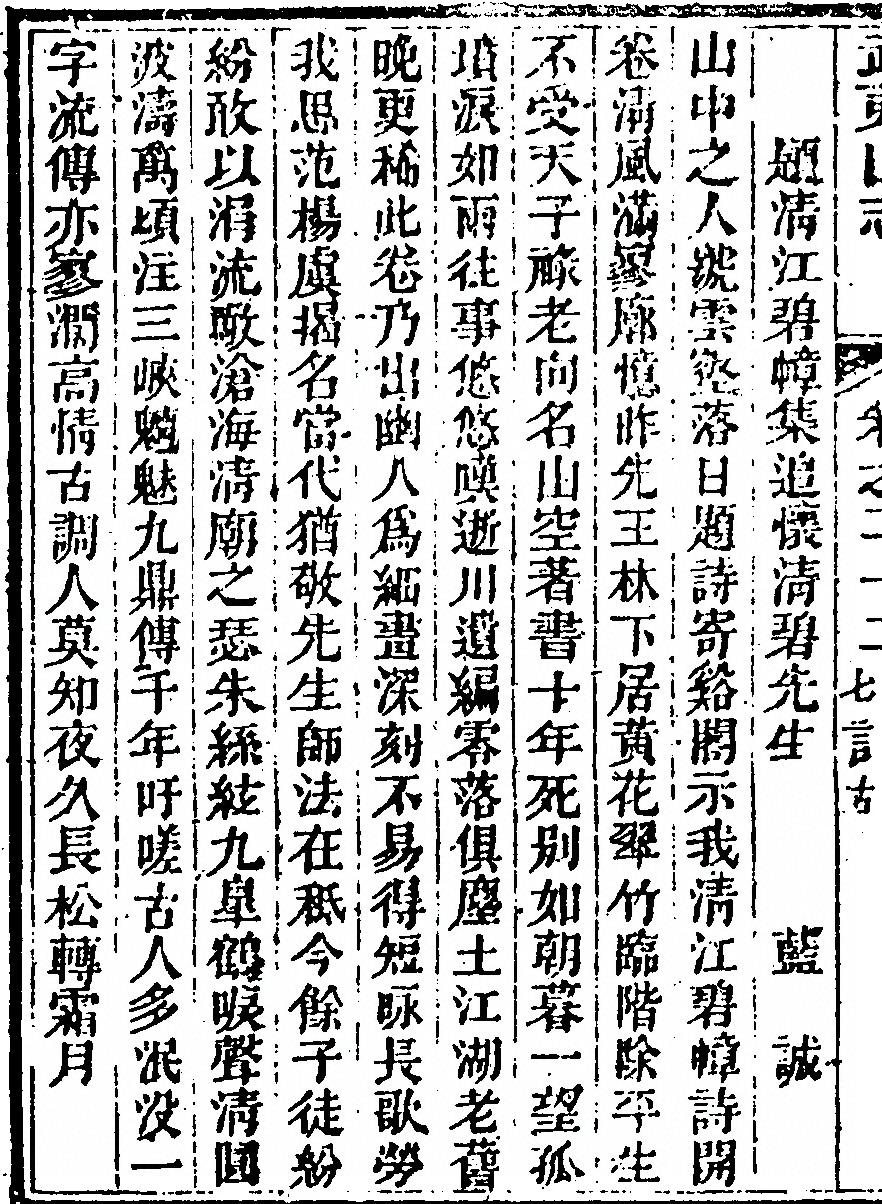 武夷山志 卷之二十二 七言古
題清江碧嶂集追懷清碧先生 藍 誠
山中之人號雲壑落日題詩寄谿閣示我清江碧嶂詩開
卷清風滿寥廓憶昨先王林下居黃花翠竹臨階除平生
不受天子祿老向名山空著書十年死別如朝暮一望孤
墳淚如雨往事悠悠嘆逝川遺編零落俱塵土江湖老舊
晚更稀此卷乃出幽人為紬畫深刻不易得短咏長歌勞
我思范楊虞揭名當代猶敬先生師法在秪今餘子徒紛
紛敢以涓流瞰滄海清廟之瑟朱絲絃九皐鶴唳聲清圓
波濤萬頃注三峽魑魅九鼎傳千年吁嗟古人多泯沒一
字流傳亦寥濶高情古調人莫知夜久長松轉霜月